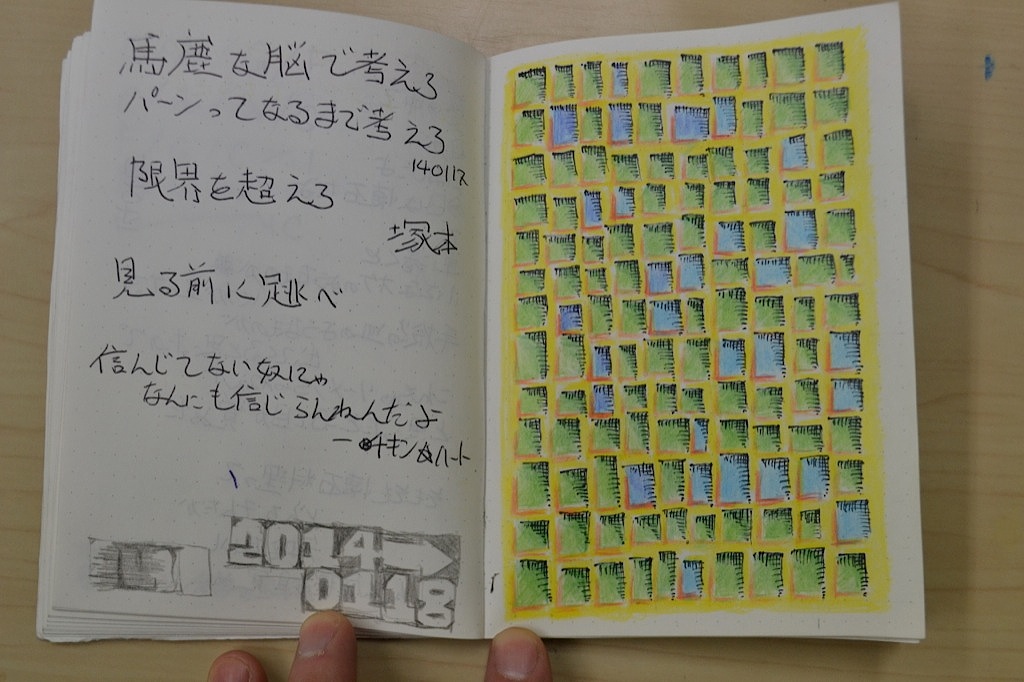 馬塵な脳で考えろ
パーンってなるまで考えろ
140117
限界を超えろ
塚本
見る前に跳べ
信んじてない奴にゃ
なんにも信じらんねんだよ
ーチキン☆ハート
2014→
0118